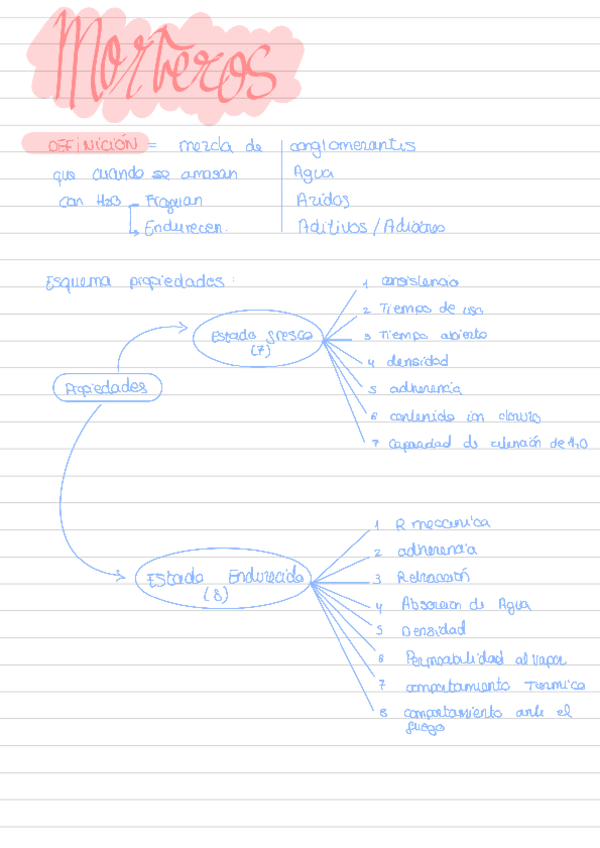 Morteros
DEFINICIÓN = mezcla de | conglomerantes
que cuando se amasan | Agua
con H2O - Fraguan | Aridos
Endurecen. | Aditivos / Adiciones
Esquema propiedades :
1 consistencia
2 Tiempo de uso
Estado fresco 3 Tiempo abierto
(7) 4 densidad
Propiedades 5 adherencia
6 contenido ion cloruro
7 Capacidad de retención de H2O
1 R mecanica
2 adherencia
Estado Endurecido 3 Retracción
(8) 4 Absorcion de Agua
5 Densidad
6 Permeabilidad al vapor
7 comportamiento Termico
8 comportamiento ante el
fuego